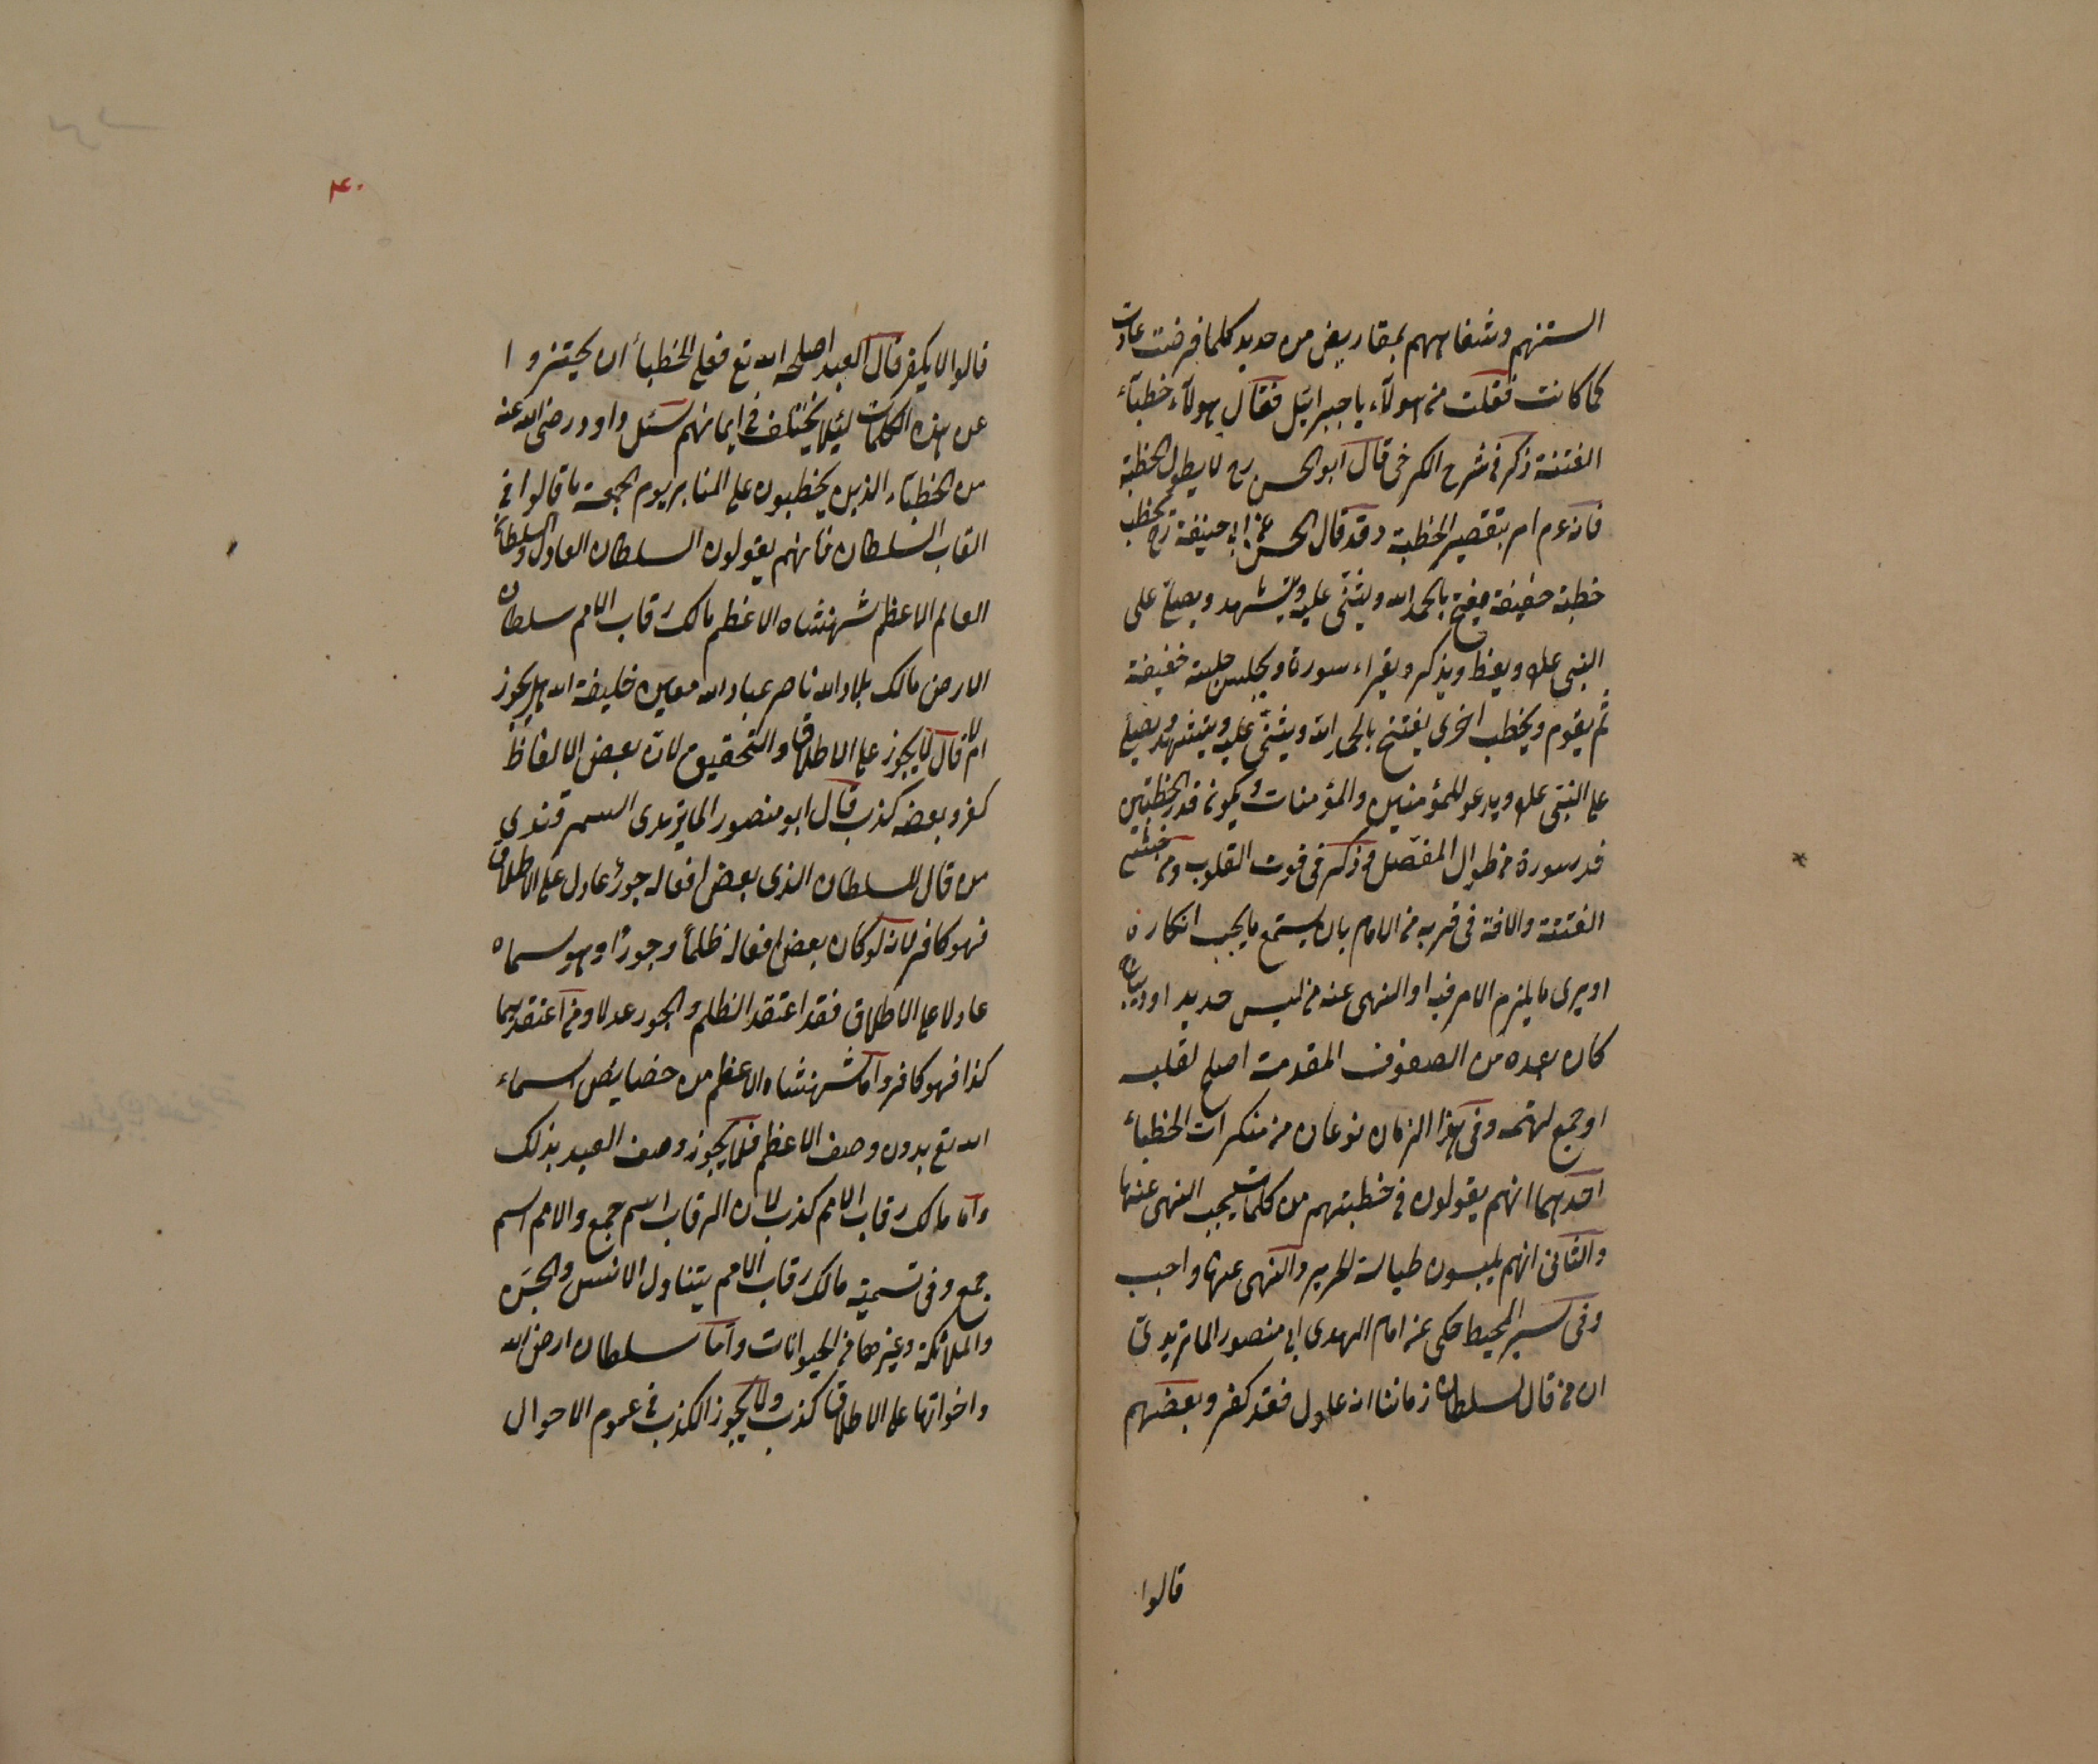 السنتهم وشفاههم بمقاريض من حديد كلما قرضت عادت
كما كانت فقلت من هولآء يا جبرائيل فقال هولآء خطبآء
الفتنة ذكر في شرح الكرخى قال ابو الحسن رح لا يطول الخطبة
فانه عم امر بتقصير الخطبة وقد قال الحسن عن ابي حنيفة رح يخطب
خطبة خفيفة يفتتح بالحمد الله ويثنى عليه ويتشهد ويصلى على
النبى علم ويعظ ويذكر ويقراء سورة ويجلس جلسة خفيفة
ثم يقوم ويخطب اخرى يفتتح بالحمد الله ويثنى عليه ويتشهد ويصلى
على النبى علم ويدعو للمؤمنين والمؤمنات ويكون قدر الخطبتين
قدر سورة من طوال المفصل وذكر فى قوت القلوب ومن خشى
الفتنة والافة فى قربه من الامام بان يستمع ما يجب انكاره
او يرى ما يلزم الامر فيه او النهى عنه من لبس حديد او ديباج
كان بعده من الصفوف المقدمة اصلح لقلبه
او جمع لهمه وفى هذا الزمان نوعان من منكرات الخطبآء
احدهما انهم يقولون فى خطبتهم من كلمات يجب النهى عنها
والثانى انهم يلبسون طيالسة الحرير والنهى عنها واجب
وفى سير المحيط حكى عن امام الهدى ابى منصور الماتريدى
ان من قال لسلطان زماننا انه عادل فقد كفر وبعضهم
قالوا
۴۰
قالوا لا يكفر قال العبد اصلحه الله تع فعلى الخطبآء ان يحترزوا
عن هذه الكلمات لئلا يختلف فى ايمانهم سئل داود رضى الله عنه
من الخطبآء الذين يخطبون على المنابر يوم الجمعة ما قالوا فى
القاب السلطان فانهم يقولون السلطان العادل والسلطان
العالم الاعظم شهنشاه الاعظم مالك رقاب الامم سلطان
الارض مالك بلاد الله ناصر عباد الله معين خليفة الله هل يجوز
ام لا قال لا يجوز على الاطلاق والتحقيق لان بعض الالفاظ
كفر وبعضه كذب قال ابو منصور الماتريدى السمرقندى
من قال للسلطان الذى بعض افعاله جور عادل على الاطلاق
فهو كافر لانه لو كان بعض افعاله ظلماً وجوراً وهو سماه
عادلا على الاطلاق فقد اعتقد الظلم والجور عدلا ومن اعتقدهما
كذا فهو كافر واما شهنشاه الاعظم من خصايص اسماء
الله تع بدون وصف الاعظم فلا يجوز وصف العبد بذلك
واما مالك رقاب الامم كذب لان الرقاب اسم جمع والامم اسم
جمع وفى تسمية مالك رقاب الامم يتناول الانس والجن
والملائكة وغيرها من الحيوانات واما سلطان ارض الله
واخواتها على الاطلاق كذب ولا يجوز الكذب فى عموم الاحوال